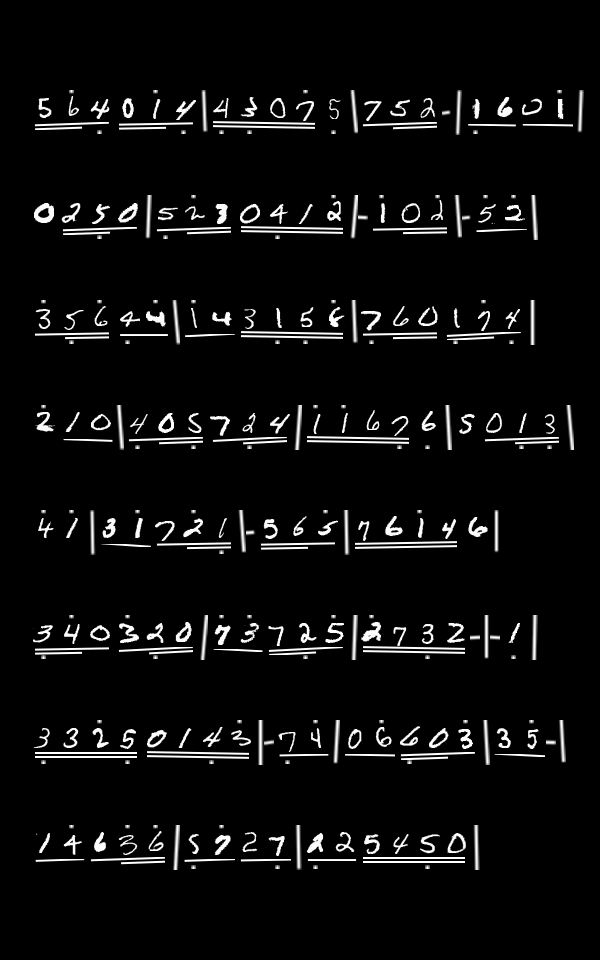 5 6 4 0 1 4 | 4 3 0 7 5 | 7 5 2 - | 1 6 0 1 |
0 2 5 0 | 5 2 3 0 4 1 2 | - 1 0 2 | - 5 2 |
3 5 6 4 4 | 1 4 3 1 5 6 | 7 6 0 1 7 4 |
2 1 0 | 4 0 5 7 2 4 | 1 1 6 7 6 | 5 0 1 3 |
4 1 | 3 1 7 2 1 | - 5 6 5 | 7 6 1 4 6 |
3 4 0 3 2 0 | 7 3 7 2 5 | 2 7 3 2 - | - 1 |
3 3 2 5 0 1 4 3 | - 7 4 | 0 6 6 0 3 | 3 5 - |
1 4 6 3 6 | 5 7 2 7 | 2 2 5 4 5 0 |